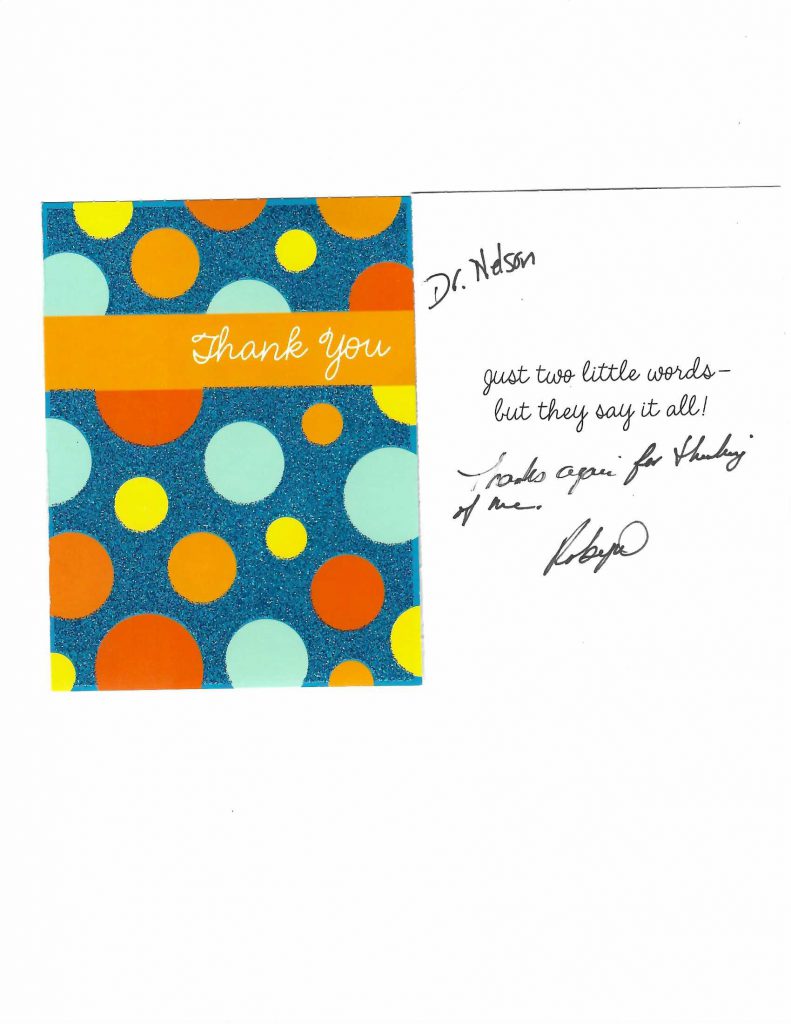 Thank You
Dr. Nelson
Just two little words–
but they say it all!
Thanks again for thinking
of me.
Robyn